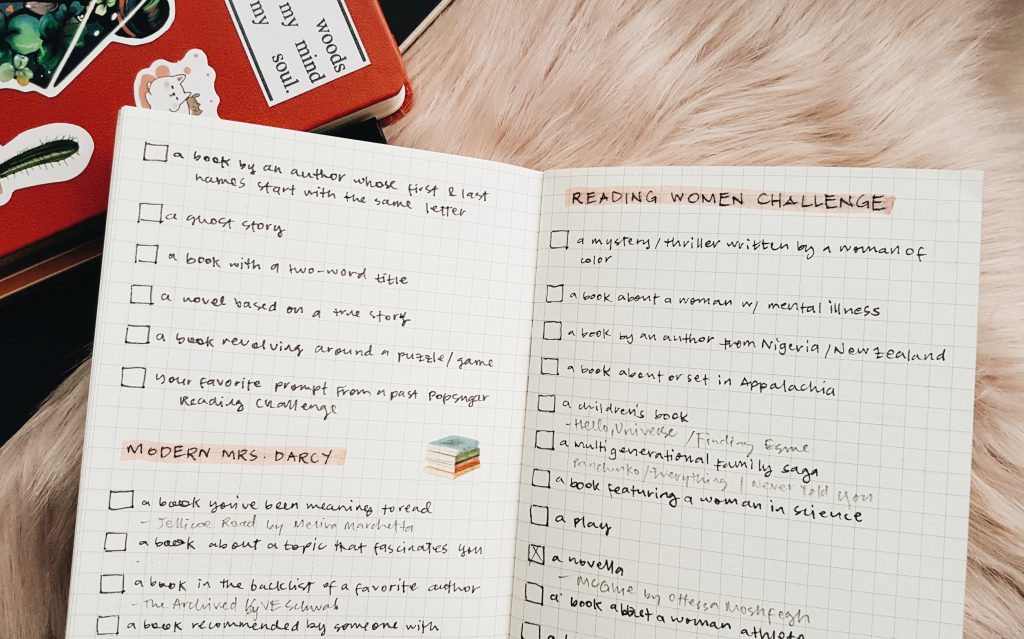 woods
my mind
my soul.
a book by an author whose first & last
names start with the same letter
a ghost story
a book with a two-word title
a novel based on a true story
a book revolving around a puzzle/game
your favorite prompt from a past popsugar
Reading Challenge
MODERN MRS. DARCY
a book you've been meaning to read
- Jellicoe Road by Melina Marchetta
a book about a topic that fascinates you
a book in the backlist of a favorite author
- The Archived by VE Schwab
a book recommended by someone with
READING WOMEN CHALLENGE
a mystery/thriller written by a woman of
color
a book about a woman w/ mental illness
a book by an author from Nigeria/New Zealand
a book about or set in Appalachia
a children's book
- Hello, Universe / Finding Esme
a multigenerational family saga
Panchinko / Everything I Never Told You
a book featuring a woman in science
a play
a novella
- McGlue by Ottessa Moshfegh
a book about a woman athlete